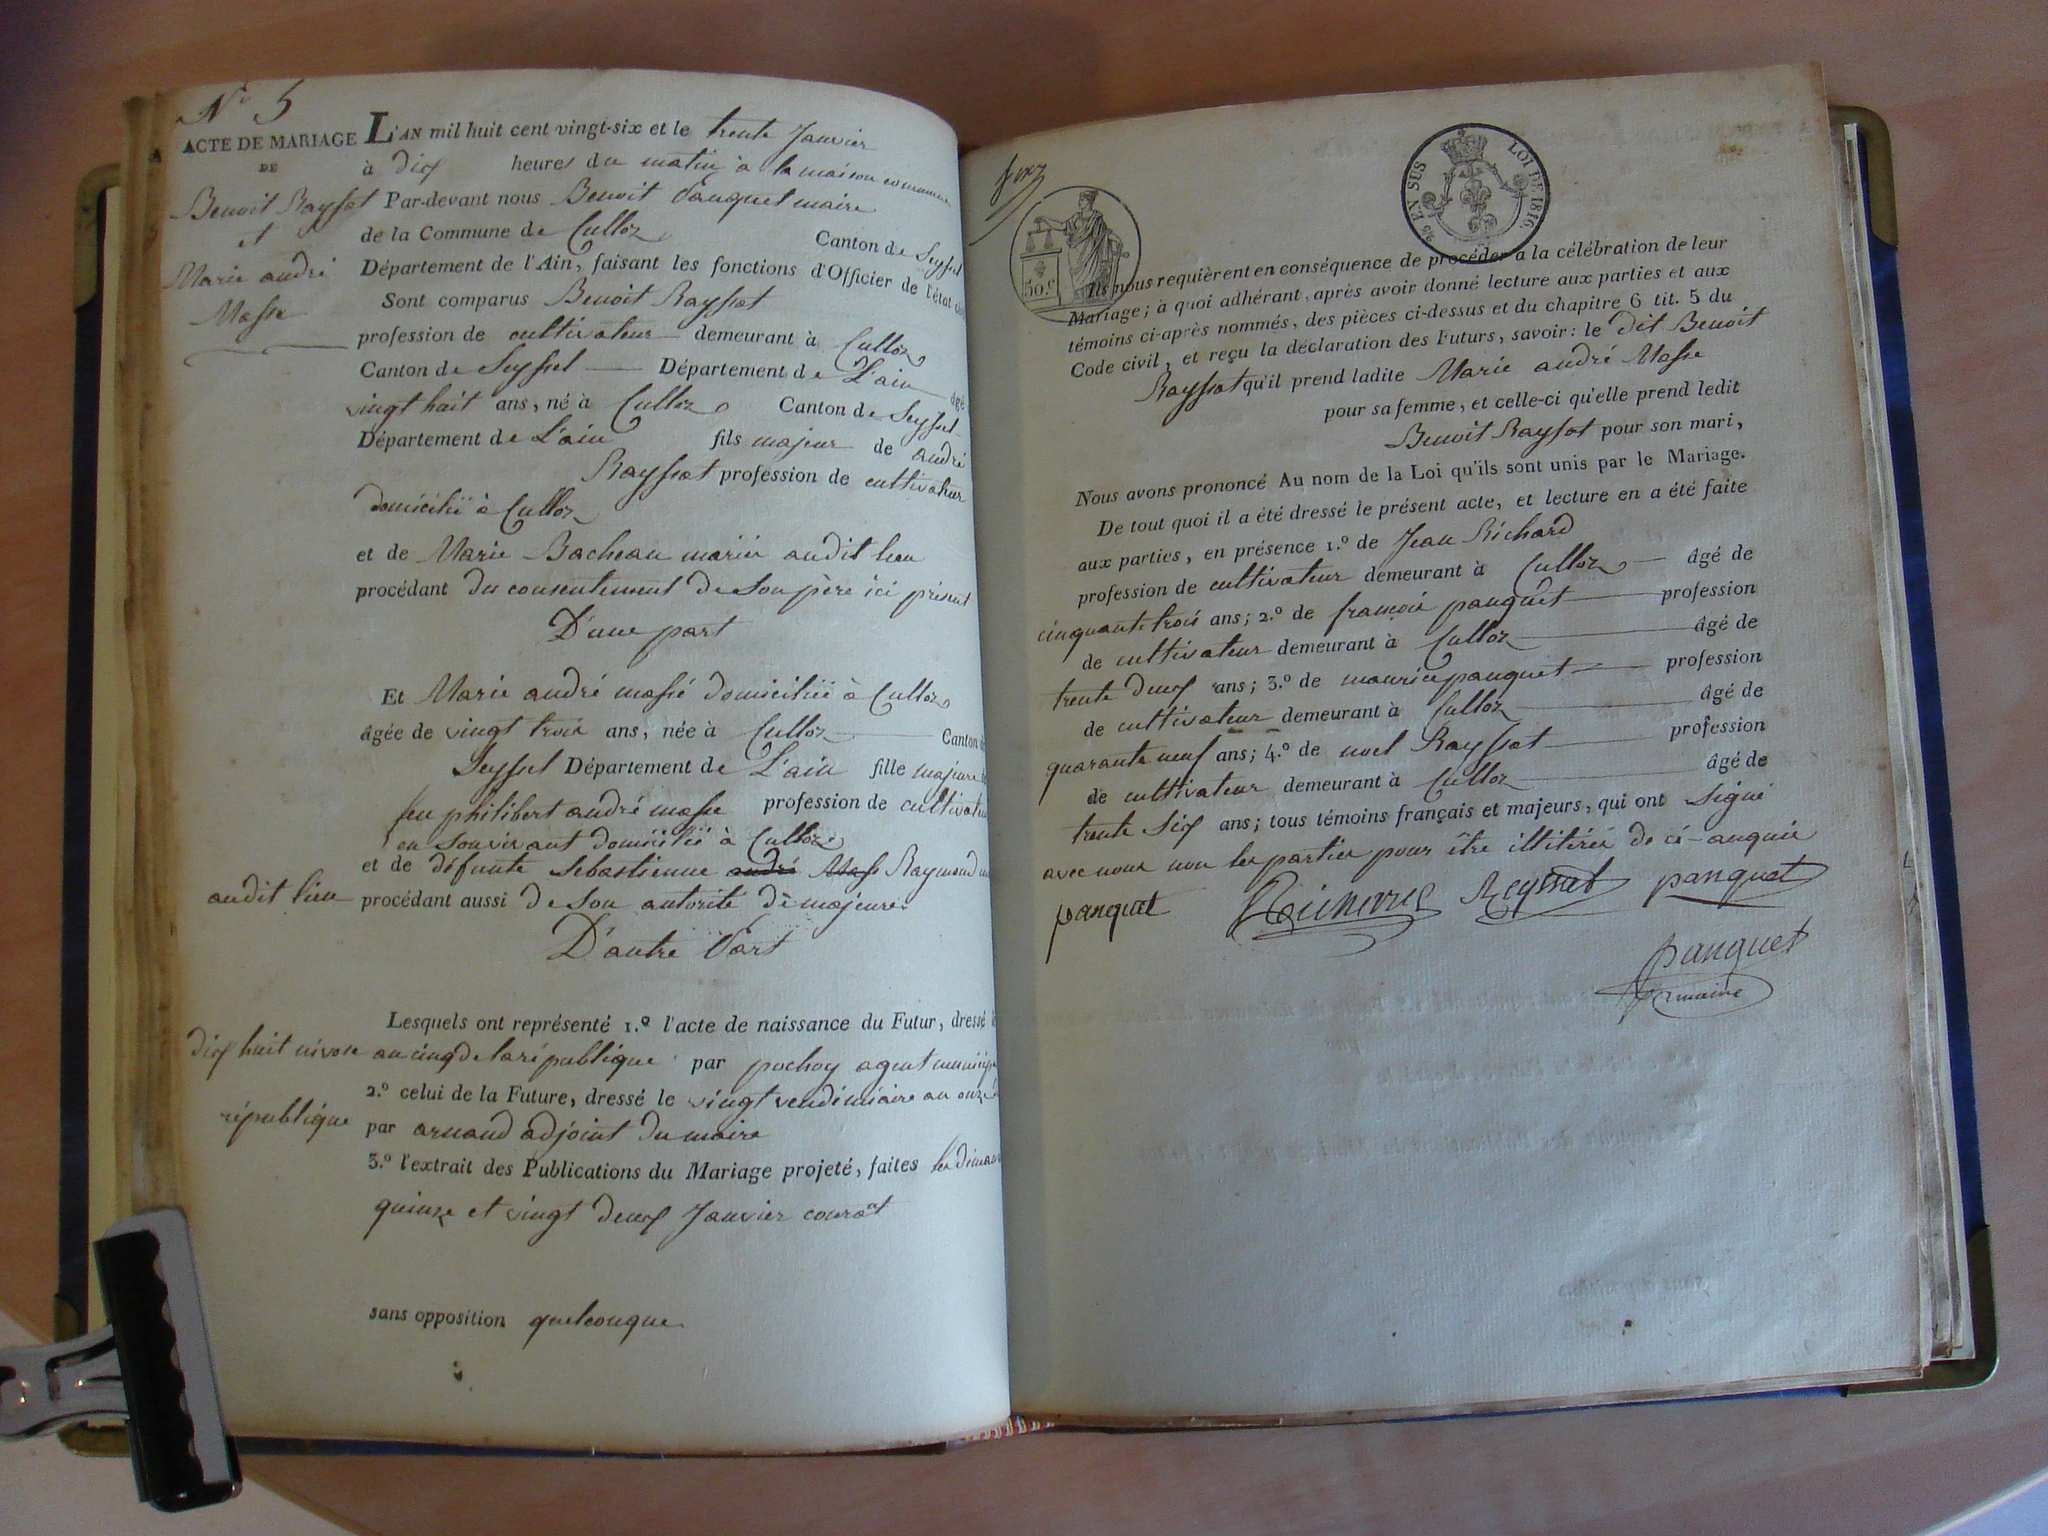 N° 5
ACTE DE MARIAGE
DE
Benoit Rayssot
et
Marie andré
Masse
L'AN mil huit cent vingt-six et le trente Janvier
à dix heures du matin à la maison commune
Par-devant nous Benoit Panquet maire
de la Commune de Culloz Canton de Seyssel
Département de l'Ain, faisant les fonctions d'Officier de l'état
Sont comparus Benoit Rayssot
profession de cultivateur demeurant à Culloz
Canton de Seyssel Département de L'ain âgé
vingt huit ans, né à Culloz Canton de Seyssel
Département de L'ain fils majeur de andré
Rayssot profession de cultivateur
domicilié à Culloz
et de Marie Bacheau mariés audit lieu
procédant du consentement de son père ici présent
D'une part
Et Marie andré massé domiciliée à Culloz
âgée de vingt trois ans, née à Culloz Canton
Seyssel Département de L'ain fille majeure
feu philibert andré masse profession de cultivateur
en son vivant domicilié à Culloz
et de défunte sebastienne andré Masse Raymond
audit lieu procédant aussi de son autorité de majeure
D'autre Part
Lesquels ont représenté 1.º l'acte de naissance du Futur, dressé
dix huit nivose an cinq de la république par pochoy agent
2.º celui de la Future, dressé le vingt vendimiaire an onze
république par arnaud adjoint du maire
3.º l'extrait des Publications du Mariage projeté, faites les
quinze et vingt deux Janvier courant
sans opposition quelconque
EN SUS LOI DE 1816.
50.c
Ils nous requièrent en conséquence de procéder à la célébration de leur
Mariage; à quoi adhérant, après avoir donné lecture aux parties et aux
témoins ci-après nommés, des pièces ci-dessus et du chapitre 6 tit. 5 du
Code civil, et reçu la déclaration des Futurs, savoir: le dit Benoit
Rayssot qu'il prend ladite Marie andré Masse
pour sa femme, et celle-ci qu'elle prend ledit
Benoit Rayssot pour son mari,
Nous avons prononcé Au nom de la Loi qu'ils sont unis par le Mariage.
De tout quoi il a été dressé le présent acte, et lecture en a été faite
aux parties, en présence 1.º de Jean Richard
profession de cultivateur demeurant à Culloz âgé de
cinquante trois ans; 2.º de françois panquet profession
de cultivateur demeurant à Culloz âgé de
trente deux ans; 3.º de maurice panquet profession
de cultivateur demeurant à Culloz âgé de
quarante neuf ans; 4.º de noel Rayssot profession
de cultivateur demeurant à Culloz âgé de
trente six ans; tous témoins français et majeurs, qui ont signé
avec nous non les parties pour être illitérés de ce enquis
panquet Reyssat panquet
panquet
maire